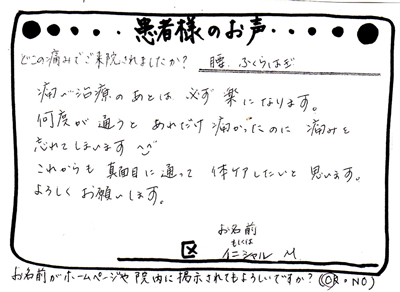 患者様のお声
どこの痛みでご来院されましたか? 腰、ふくらはぎ
痛い治療のあとは必ず楽になります。
何度が通うと あれだけ痛かったのに 痛みを
忘れてしまいます ^^
これからも 真面目に通って 体ケアしたいと思います。
よろしくお願いします。
お名前
もしくは
イニシャル M
区
お名前がホームページや院内に掲示されてもよろしいですか?(OR・NO)